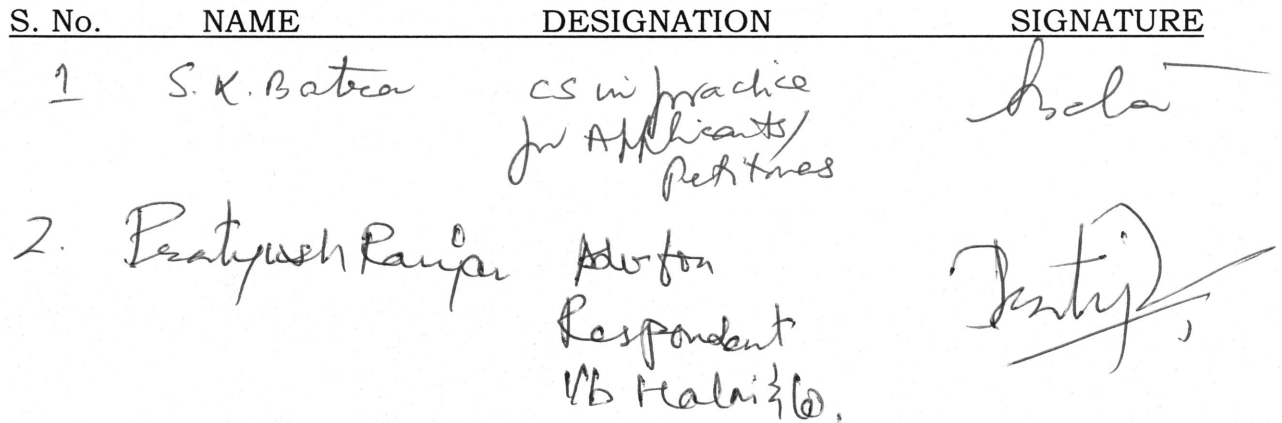 S. No. NAME DESIGNATION SIGNATURE
1 S. K. Batra CS in practice
for Applicants/
Petitiones
2. Pratyush Ranjan Adv for
Respondent
I/b & Co.